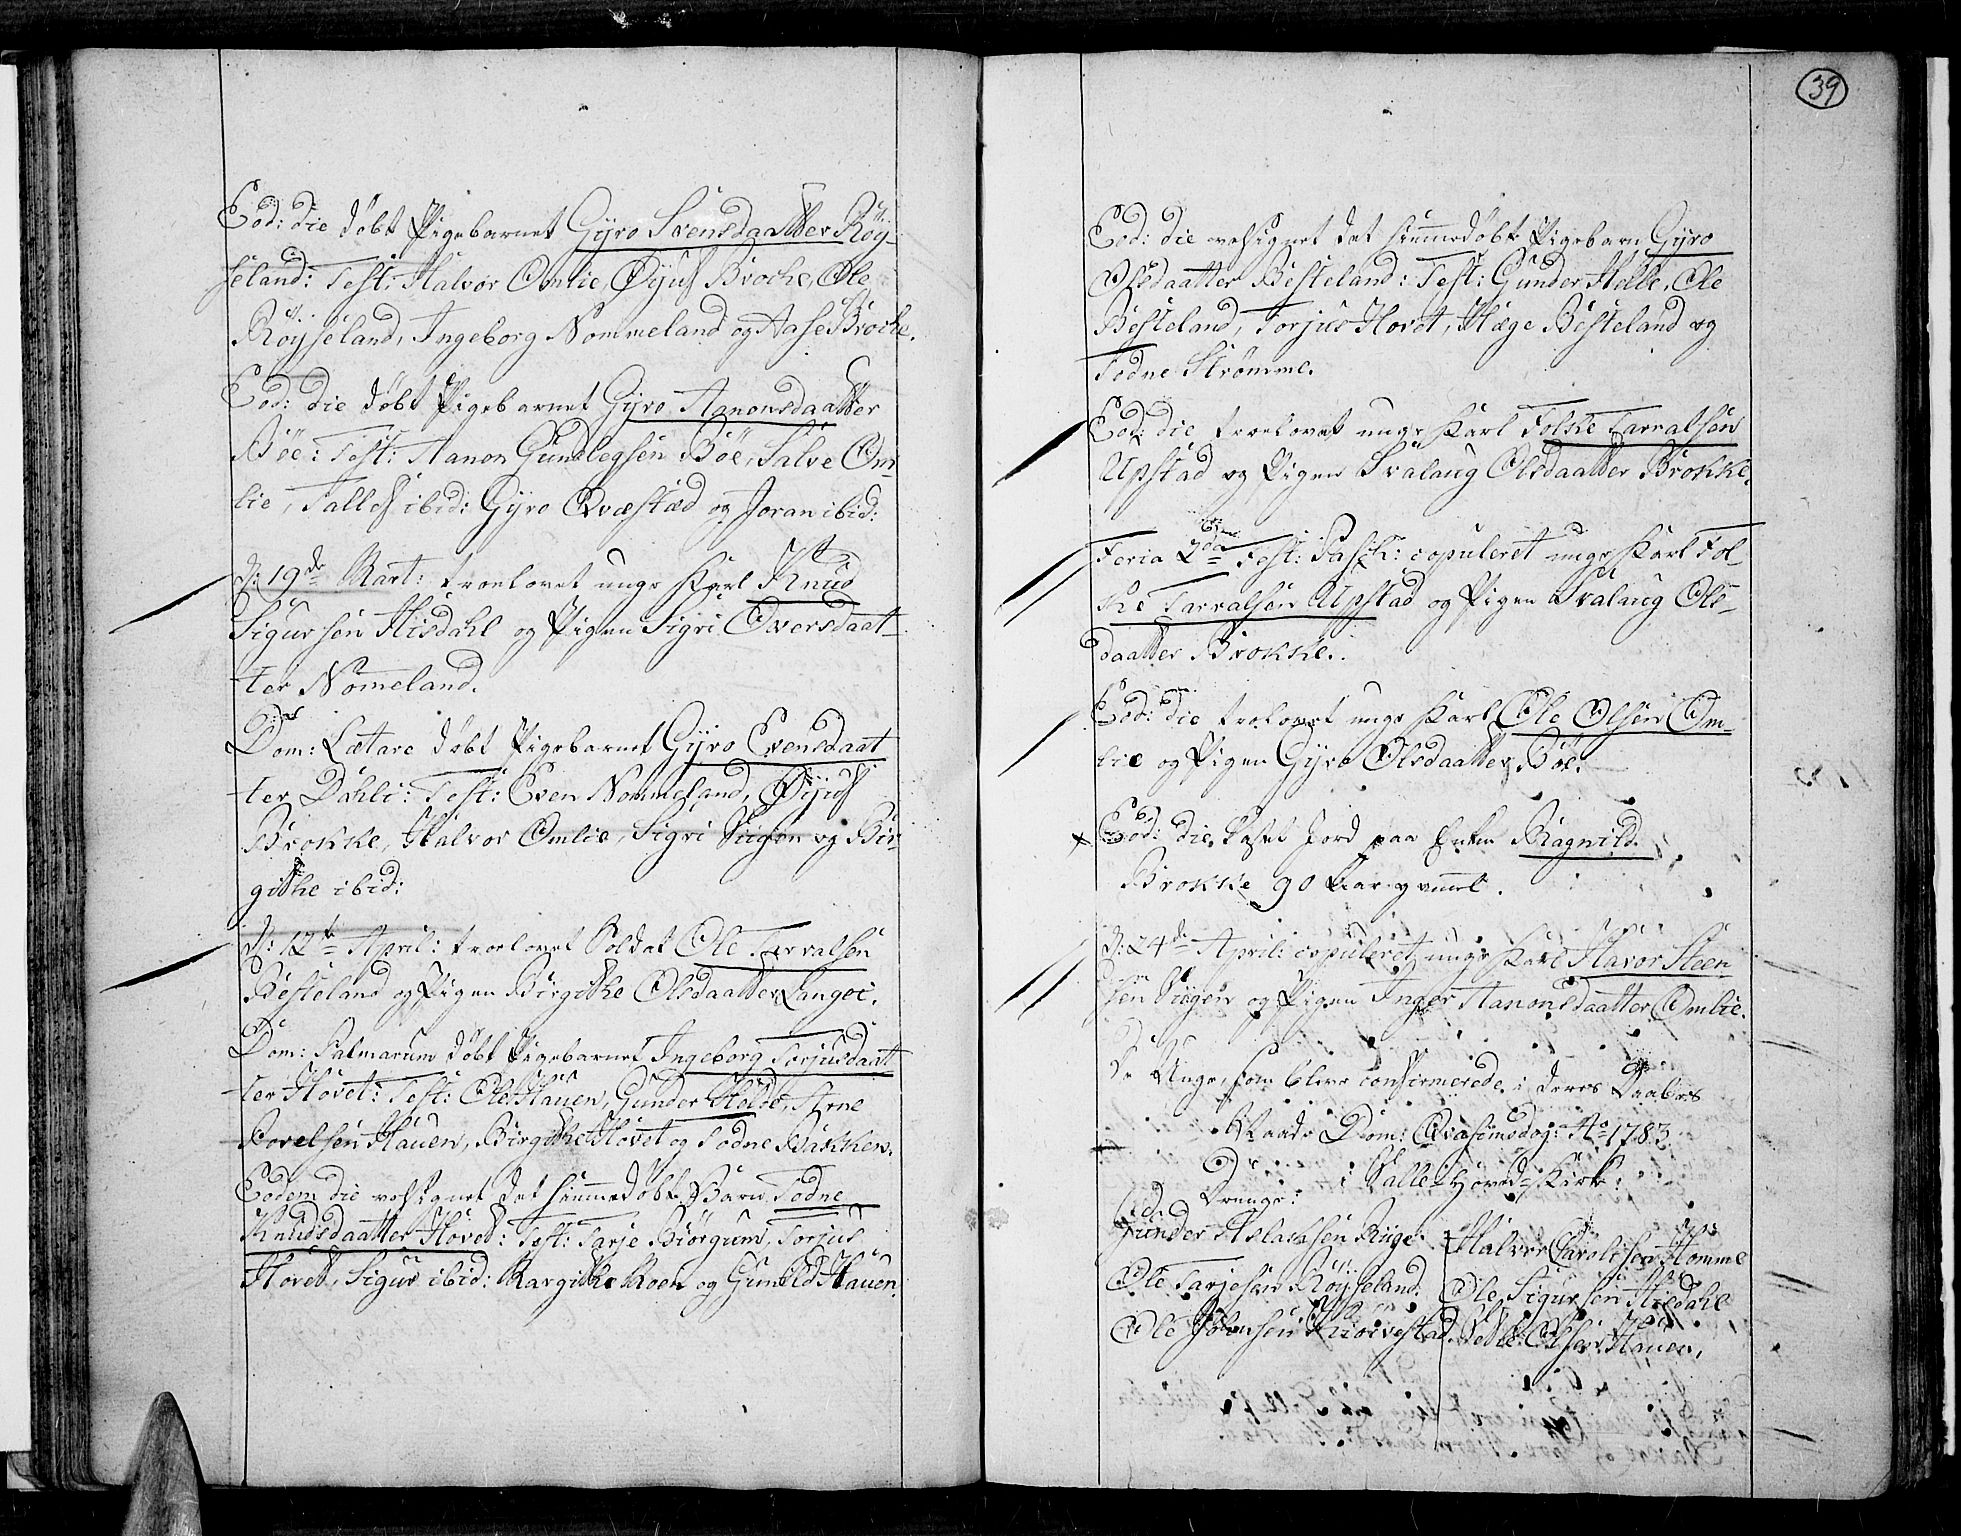 Eod: die døbt Pigebarnet Gyro Svensdaatter Röy-
seland: Test: Halvor Omlie, Øyuf Broche, Ole
Röyseland, Ingeborg Nommeland og Aase Broche.
Eod: die døbt Pigebarnet Gyro Aanonsdaatter
Böe: Test: Aanon Gundlegsen Böe, Salve Om-
lie, Tallef ibid: Gyro Qvæstad og Joran ibid:
D: 19de Mart: troelovet unge Karl Knud
Sigursen Hisdahl og Pigen Sigri Oversdaat-
ter Nom̄eland.
Dom: Lætare døbt Pigebarnet Gyro Evensdaat
ter Dahli: Test: Even Nommeland, Øyuf
Brokke, Halvor Omlie, Sigri Siigen og Bir-
githe ibid:
D: 12te April: troelovet Soldat Ole Tarvalsen
Besteland og Pigen Birgithe Olsdaatter Langei.
Dom: Palmarum døbt Pigebarnet Ingeborg Torjusdaat
ter Hovet: Test: Ole Hauen, Gunder Holde, Arne
Povelsen Hauen, Birgithe Hovet og Todne Bakken.
Eodem die velsignet det hiemmedøbt Barn Todne
Knudsdaatter Hovet: Test: Tarje Biörgum, Torjus
Hovet, Sigur ibid: Margithe Moen og Gunild Hauen.
39
Eod: die velsignet det hiemmedøbt Pigebarn Gyro
Olsdaatter Besteland: Test: Gunder Helle, Ole
Besteland, Torjus Hovet, Hæge Besteland og
Todne Strømme.
Eod: die troelovet unge Karl Folke Tarralsen
Upstad og Pigen Svalaug Olsdaatter Brokke.
Feria 2da Fest: Pasch: copuleret unge Karl Fol
ke Tarralsen Upstad og Pigen Svalaug Ols-
daatter Brokke.
Eod: die troelovet unge Karl Ole Olsen Om-
lie og Pigen Gyro Olsdaatter Böe.
Eod: die kastet Jord paa Enken Ragnild
Brokke 90 Aar gammel.
D: 24de April: copuleret unge Karl Havor Steen
sen Siigen og Pigen Inger Aanonsdaatter Omlie.
De Unge, som bleve confirmerede i deres Daabes
Naade Dom: Qvasimodog: Ao 1783
i Valle Hoved-Kirke:
Drenge:
Gunder Aslaksen Riige
Ole Tarjesen Röyseland.
Ole
Halvor Carolisen Homme
Ole Sigursen Hisdahl
Olsen Hauen,